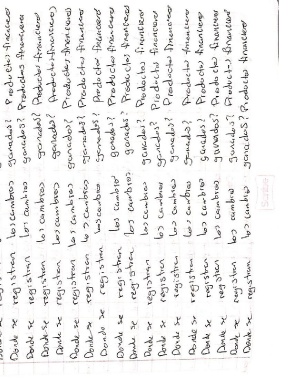 Donde se registran los cambios ganados? Productos financieros
Donde se registran los cambios ganados? Productos financieros
Donde se registran los cambios ganados? Productos financieros
Donde se registran los cambios ganados? Productos financieros
Donde se registran los cambios ganados? Productos financieros
Donde se registran los cambios ganados? Productos financieros
Donde se registran los cambios ganados? Productos financieros
Donde se registran los cambios ganados? Productos financieros
Donde se registran los cambios ganados? Productos financieros
Donde se registran los cambios ganados? Productos financieros
Donde se registran los cambios ganados? Productos financieros
Donde se registran los cambios ganados? Productos financieros
Donde se registran los cambios ganados? Productos financieros
Donde se registran los cambios ganados? Productos financieros
Donde se registran los cambios ganados? Productos financieros
Donde se registran los cambios ganados? Productos financieros
Donde se registran los cambios ganados? Productos financieros